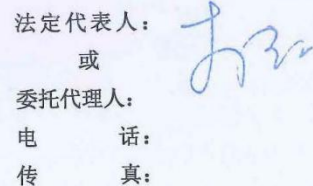 法定代表人：
或
委托代理人：
电 话：
传 真：